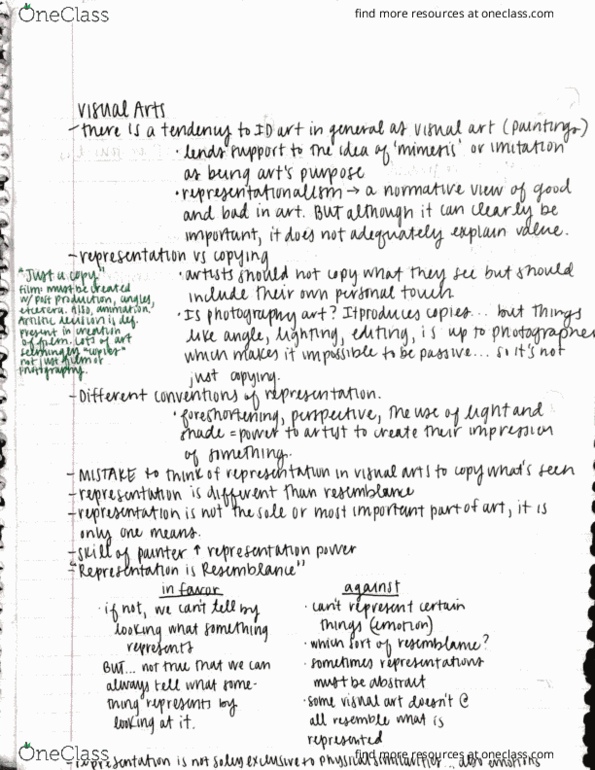 OneClass
find more resources at oneclass.com
Visual Arts
- there is a tendency to ID art in general as visual art (paintings)
· lends support to the idea of 'mimesis' or imitation
as being art's purpose
· representationalism → a normative view of good
and bad in art. But although it can clearly be
important, it does not adequately explain value.
- representation vs copying
· artists should not copy what they see but should
include their own personal touch
· Is photography art? It produces copies... but things
like angle, lighting, editing, is up to photographer
which makes it impossible to be passive... so it's not
just copying.
"Just a copy"
film: must be created
w/ post production, angles,
etcetera. Also, animation.
Artistic decision is def.
present in creation
of film. Lots of art
seemingly "copies"
not just film or
photography.
- Different conventions of representation.
· foreshortening, perspective, the use of light and
shade = power to artist to create their impression
of something.
- MISTAKE to think of representation in visual arts to copy what's seen
- representation is different than resemblance
- representation is not the sole or most important part of art, it is
only one means.
- skill of painter ↑ representation power
- "Representation is Resemblance"
in favor
· if not, we can't tell by
looking what something
represents
BUT... not true that we can
always tell what some-
thing represents by
looking at it.
against
· can't represent certain
things (emotion)
· which sort of resemblance?
· sometimes representations
must be abstract
· some visual art doesn't @
all resemble what is
represented
- representation is not soley exclusive to physical similarities... also emotions
OneClass
find more resources at oneclass.com